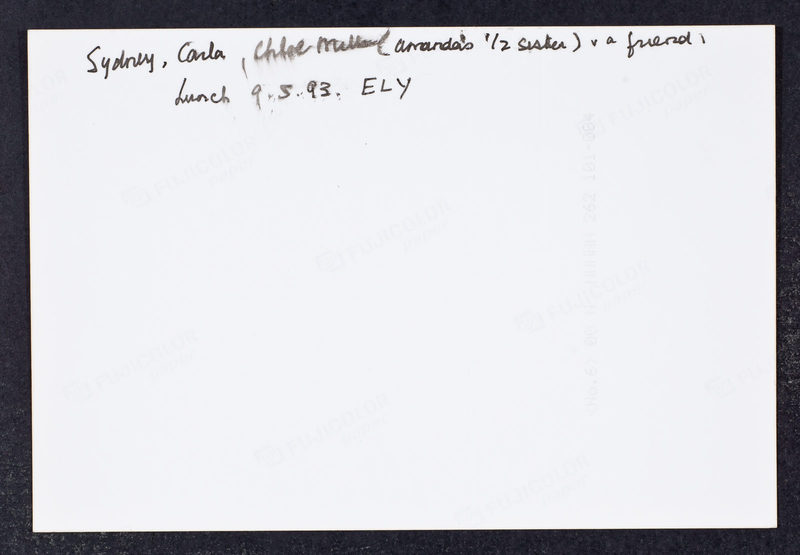 Sydney, Carla, Chloe (Amanda's 1/2 sister) & a friend,
Lunch 9.5.93. ELY
FUJICOLOR paper
FUJICOLOR paper
FUJICOLOR paper
FUJICOLOR paper
FUJICOLOR paper
FUJICOLOR paper
FUJICOLOR paper